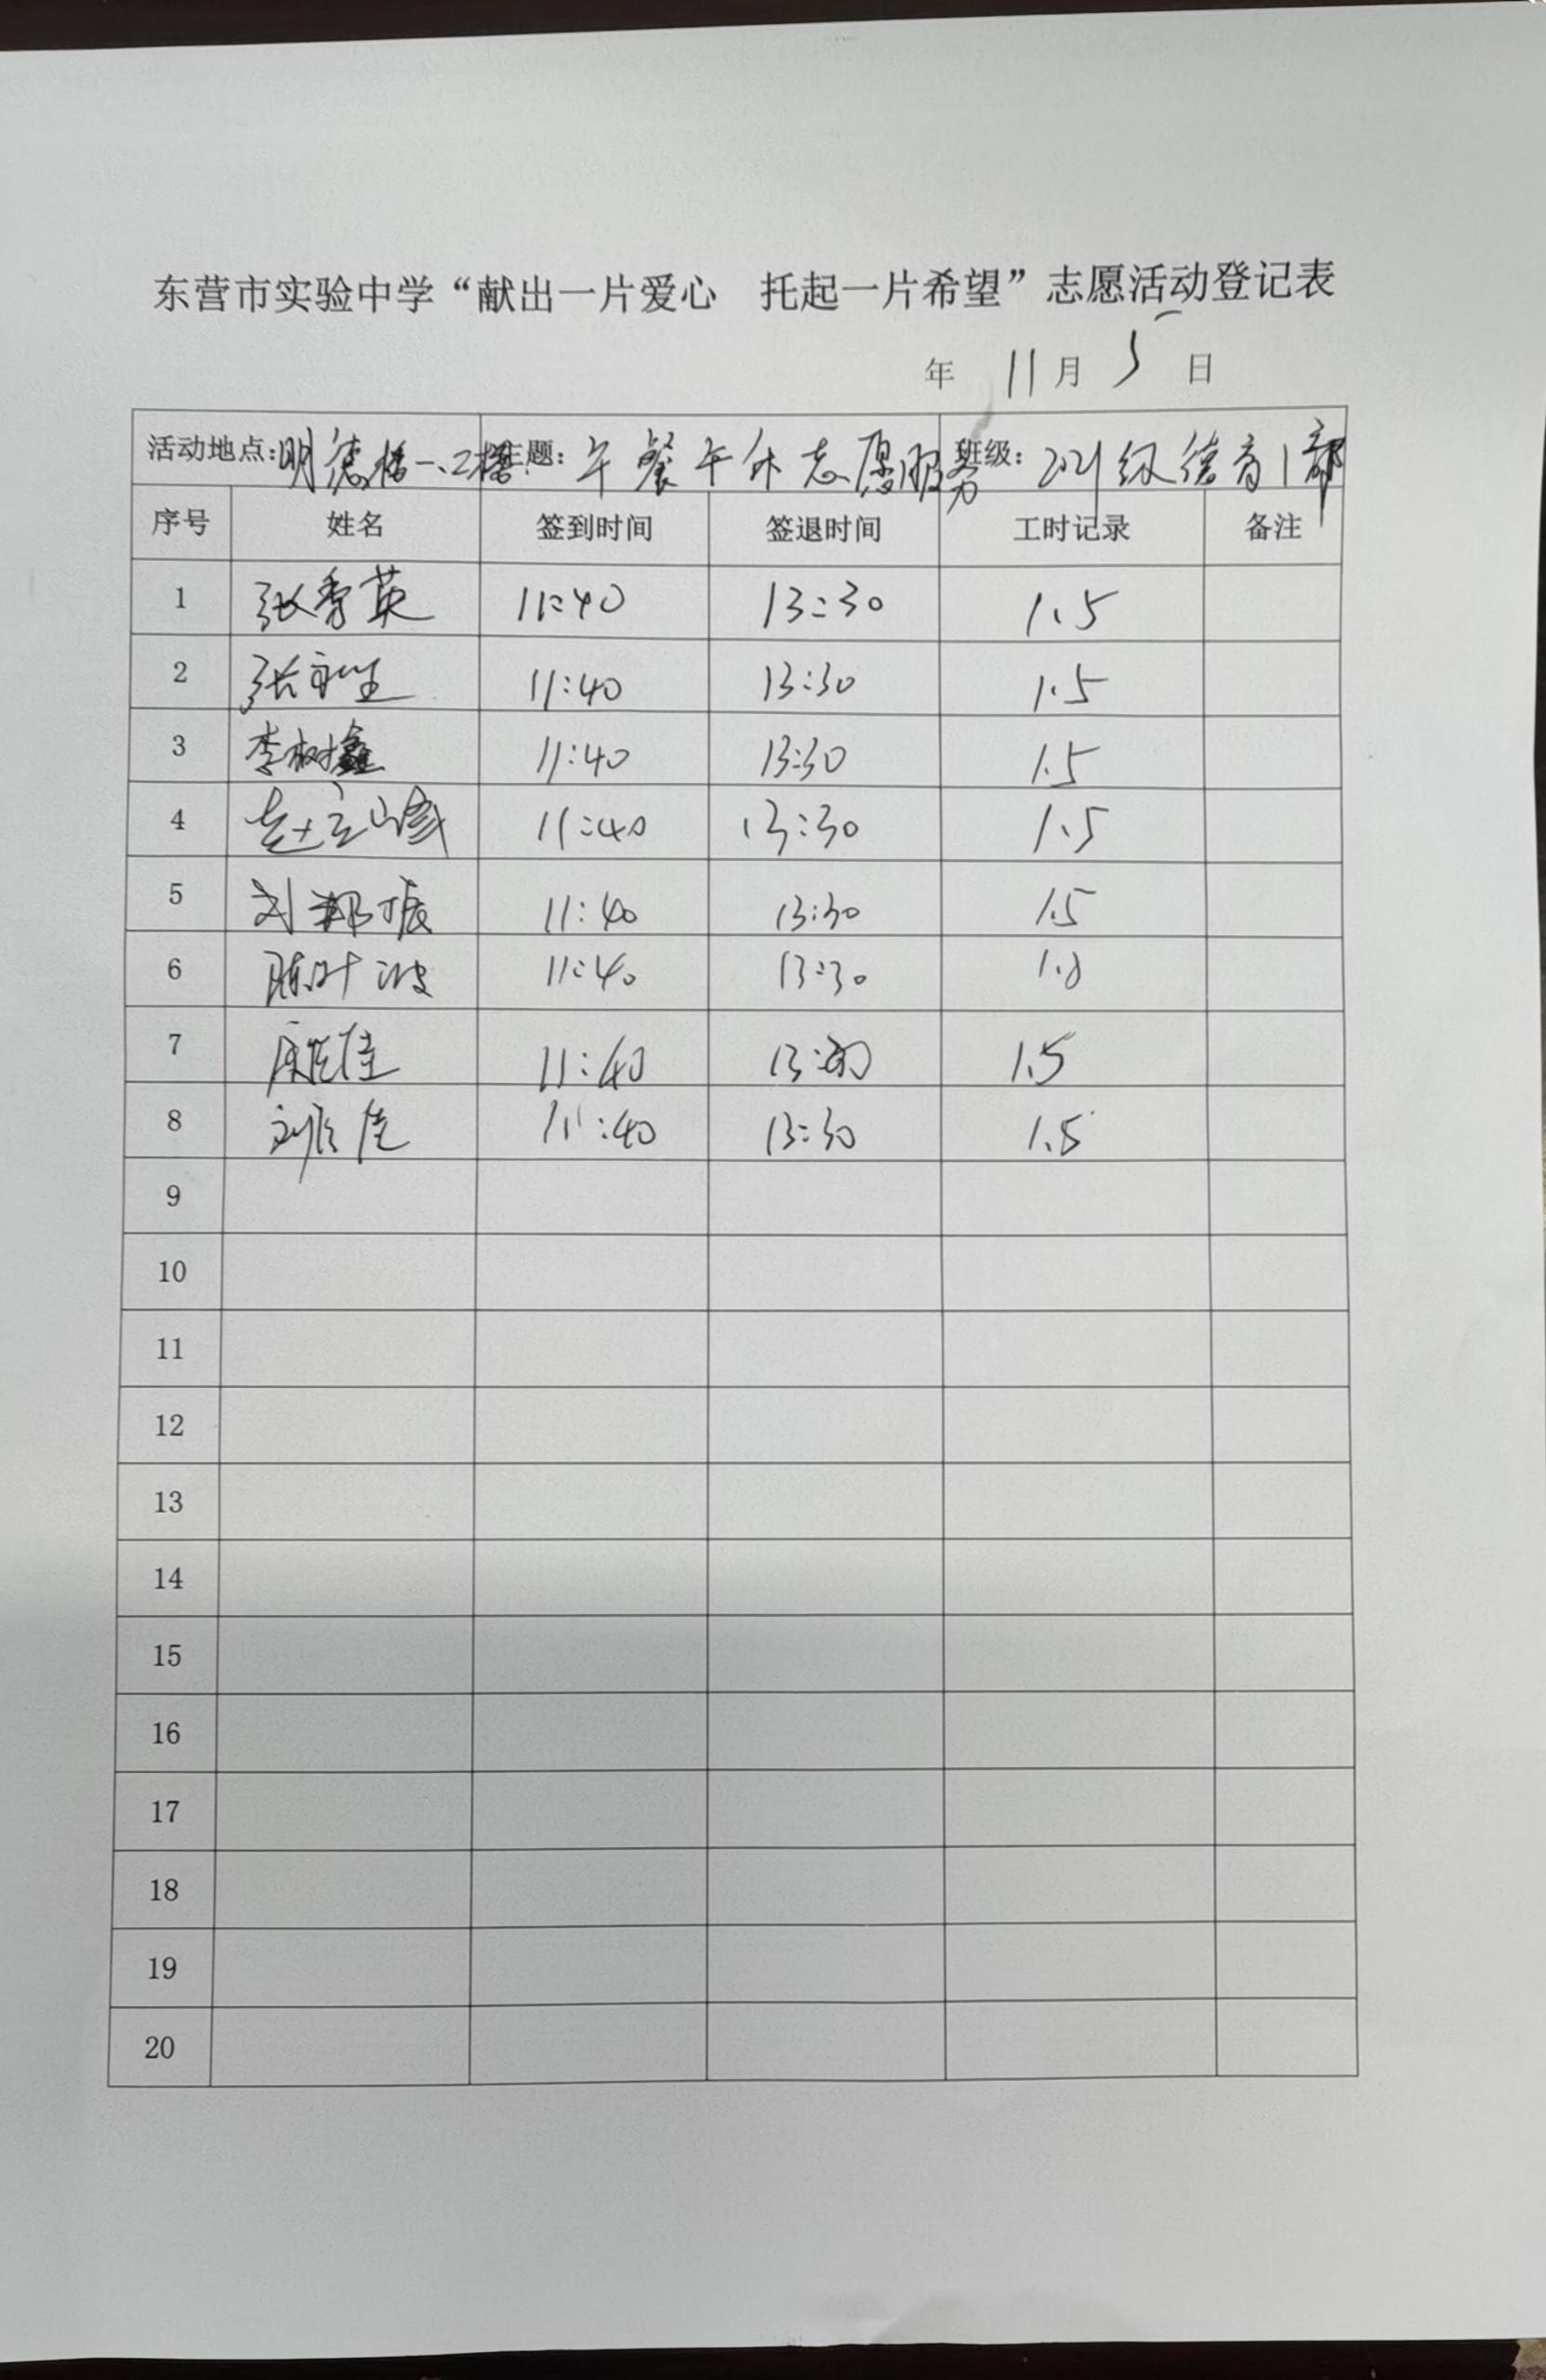 东营市实验中学“献出一片爱心 托起一片希望”志愿活动登记表
年 11月 5 日
活动地点:明德楼一、二楼 主题:午餐午休志愿服务 班级:2021级德育1部
序号 姓名 签到时间 签退时间 工时记录 备注
1 张秀英 11:40 13:30 1.5
2 张 11:40 13:30 1.5
3 李树鑫 11:40 13:30 1.5
4 赵 11:40 13:30 1.5
5 刘邦振 11:40 13:30 1.5
6 陈叶波 11:40 13:30
7 11:40 13:30 1.5
8 刘 佳 11:40 13:30 1.5
9
10
11
12
13
14
15
16
17
18
19
20